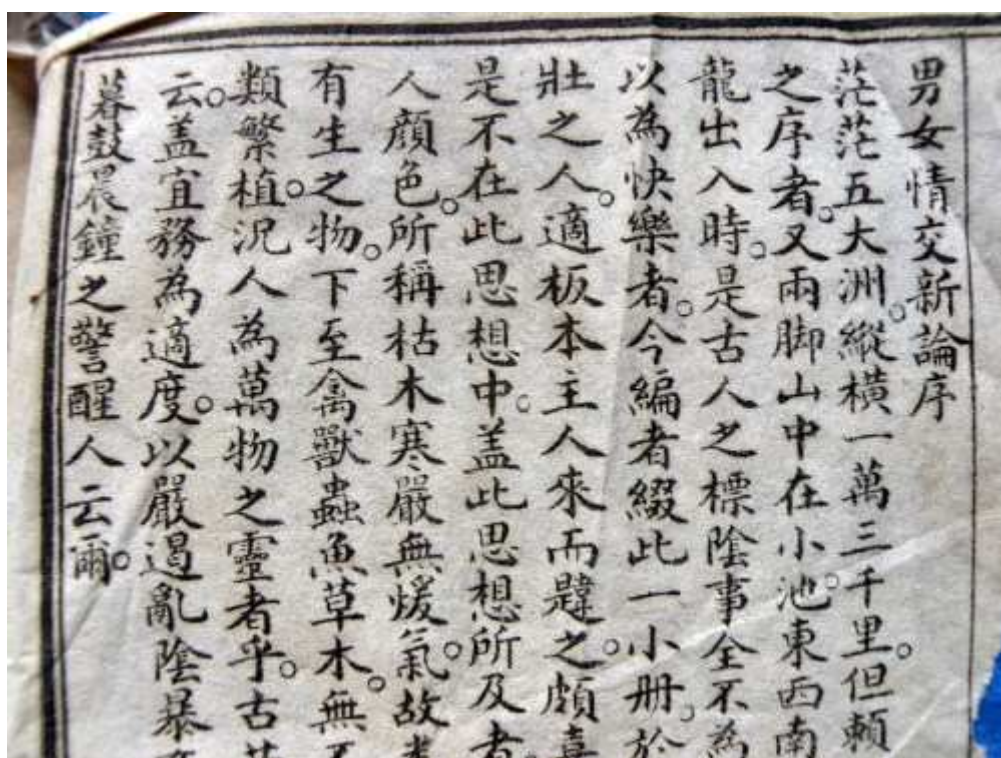 男女情交新論序
茫茫五大洲。縱橫一萬三千里。但賴
之序者。又兩脚山中在小池。東西南
龍出入時。是古人之標陰事全不為
以為快樂者。今編者綴此一小冊。於
壯之人。適板本主人來而韙之。頗喜
是不在此思想中。盖此思想所及者
人顏色。所稱枯木寒嚴無煖氣。故
有生之物。下至禽獸蟲魚草木。無
類繁植。況人為萬物之靈者乎。古
云。盖宜務為適度。以嚴遏亂陰暴
暮鼓晨鐘之警醒人云爾。